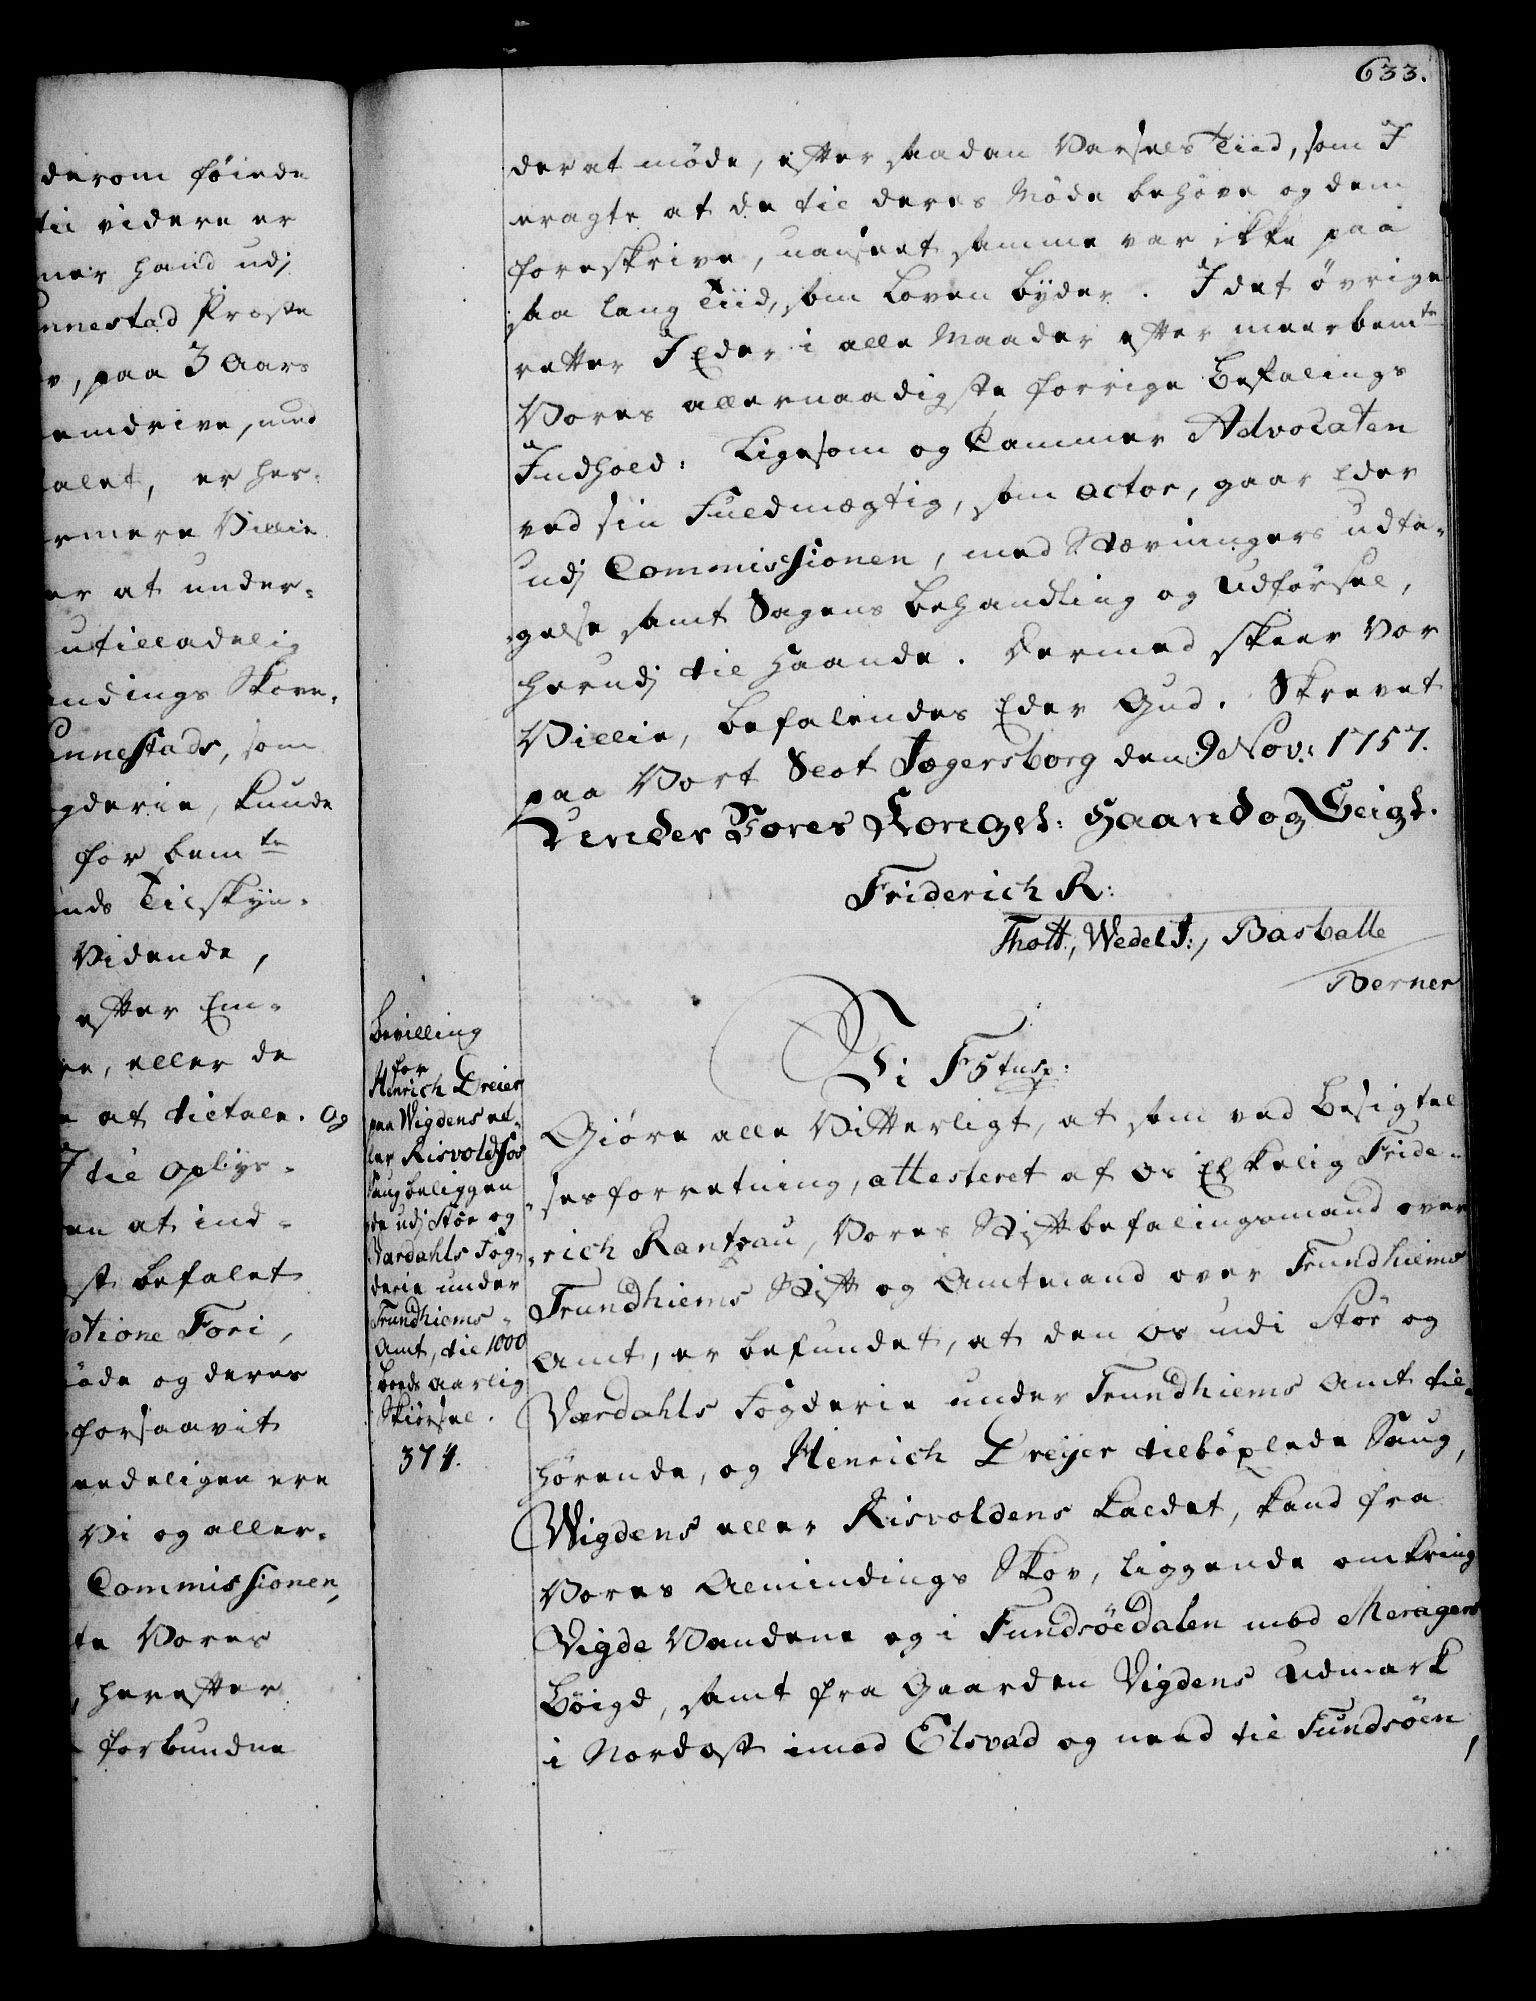 derom föiede
til videre er
ner hand udj
nnestad Præste
v, paa 3 Aars
emdrive, med
alet, er her-
rmere Villie
er at under-
utilladelig
indings Skove,
ennestads, som
gderie, kunde
for bemte
nds Tilskyn-
Vidende,
efter Em-
re, eller de
e at tiltale. Og
J til oplys-
en at ind-
st befalet
ptione Fori,
öde og deres
forsaavit
endeligen ere
Vi og aller-
Commissionen,
te Vores
herefter
forbundne
633.
der at möde, efter saadan Varsels Tiid, som J
eragte at de til deres Møde behöve og dem
foreskrive, uanseet samme var ikke paa
saa lang Tiid, som Loven byder. J det övrige
retter J Eder i alle Maader efter meerbemte
Vores allernaadigste forrige Befalings
Indhold: Ligesom og Cammer Advocaten
ved sin Fuldmægtig, som Actor, gaar Eder
udj Commissionen, med Stævningers udta-
gelse samt Sagens behandling og Udförsel,
herudj til Haande. Dermed skeer Vor
Villie, befalendes Eder Gud. Skrevet
paa Vort Slot Jægersborg den 9 Nov: 1757.
Under Vores Kongel: Haand og Seigl.
Friderich R:
Thott, Wedel J:, Basballe
Berner
Bevilling
for
Henrich Dreier
paa Wigdens el-
ler Risvoldsfos
Saug beliggen
de udj Stör og
Værdahls Fog-
derie under
Trundhiems-
Amt, til 1000
bords aarlig
Skiörsel.
374.
Vi F5 tusp:
Giöre alle Vitterligt, at som ved Besigtel
sesforretning, attesteret af Os Elskelig Fride-
rich Rantzau, Vores Stiftbefalingsmand over
Trundhiems Stift og Amtmand over Trundhiems
Amt, er befundet, at den Os udi Stör og
Værdahls Fogderie under Trundhiems Amt til-
hörende, og Henrich Dreijer tilböxlede Saug,
Wigdens eller Risvoldens kaldet, kand fra
Vores Almindings Skov, liggende omkring
Vigde Vandene og i Fundsöedalen mod Meragers
Böigd, samt fra Gaarden Vigdens Udmark
i Nordost imod Elsvad og need til Fundsöen,